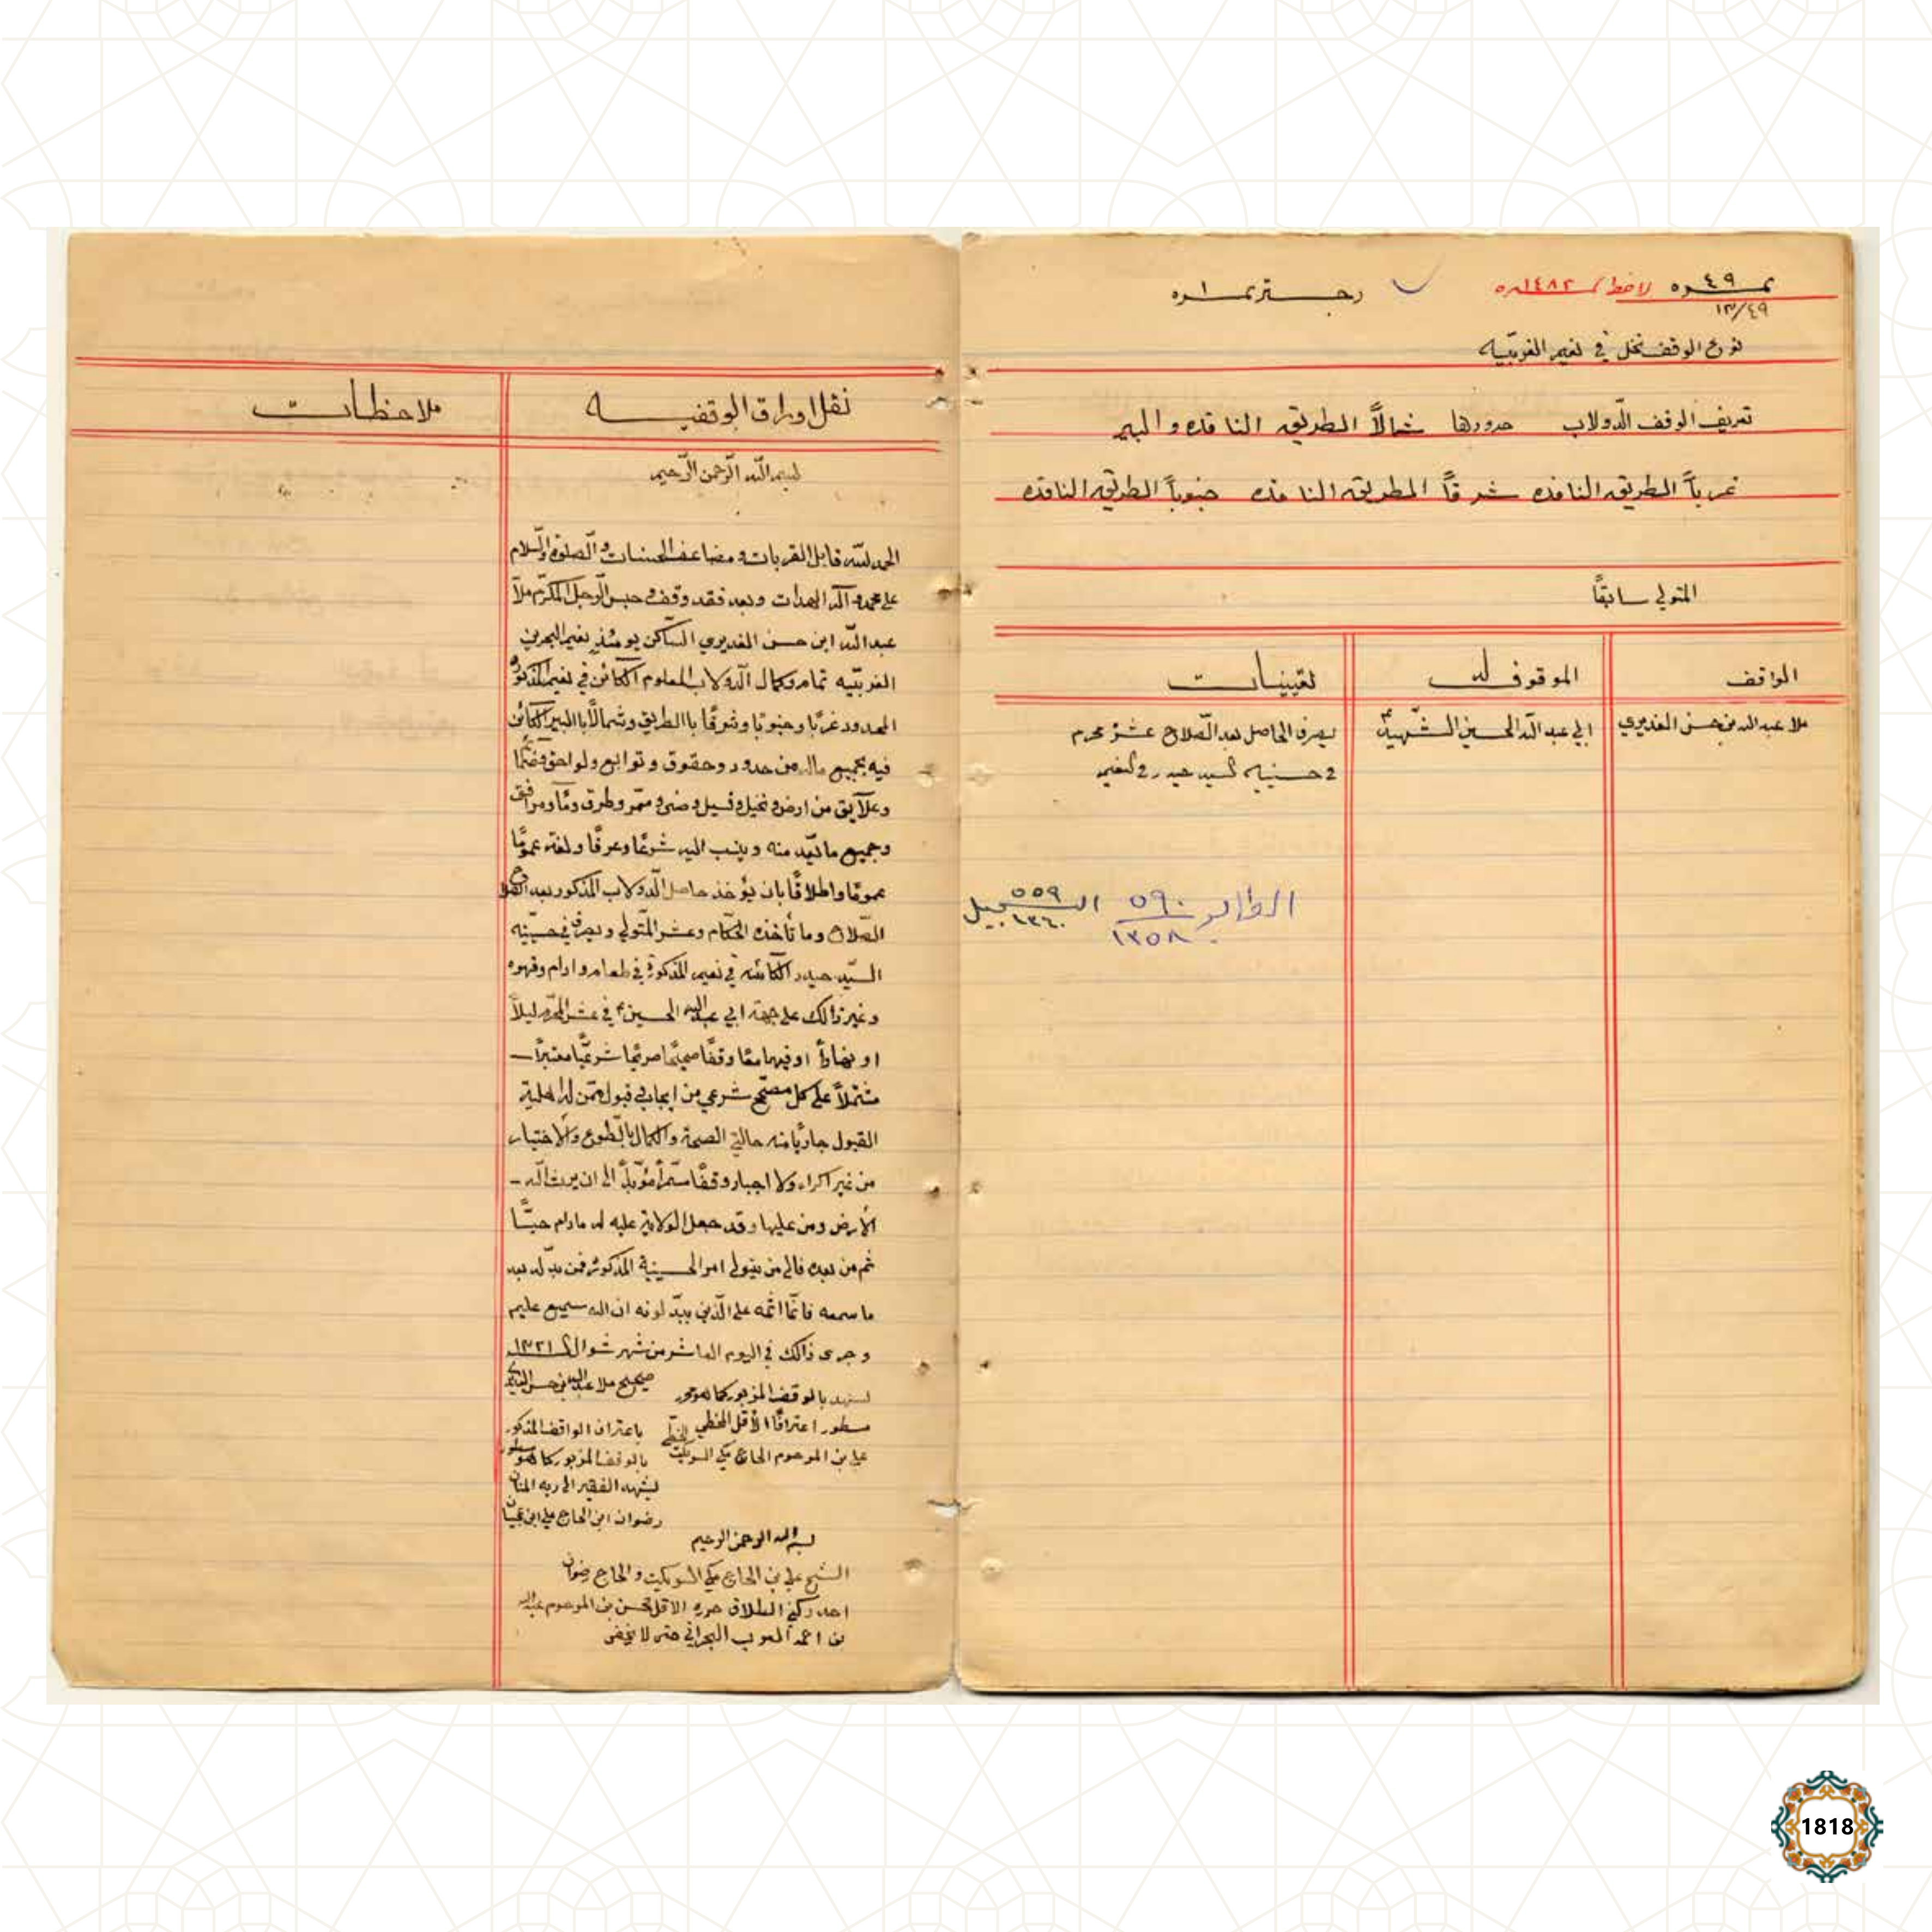 نمـ٤٩ـره لاحظ نمـ١٤٨٢ـره
رجـستر نمـ١ـره
١٣/٤٩
نوع الوقف نخل في نعيم الغربيّه
تعريف الوقف الدّولاب حدودها شمالاً الطريق النافذه والبير
غرباً الطريق النافذه شرقاً الطريق النافذه جنوباً الطريق النافذه
المتولي سابقاً
الواقف
الموقوف له
تعيينات
ملا عبد الله بن حسن الغديري
ابي عبد الله الحسين الشّهيد ع
يصرف الحاصل بعد الصّلاح عشر محرم
في حسنيه السيد حيدر في النعيم
الطابو ٥٩٠ / ١٣٥٨
التسجيل ٥٥٩ / ١٣٦٠
نقل اوراق الوقفيه
ملاحظات
بسم الله الرّحمن الرّحيم
الحمد لله قابل القربات ومضاعف الحسنات والصلوة والسّلام
على محمد وآله الهدات وبعد فقد وقف وحبس الرجل المكرّم ملا
عبد الله ابن حسن الغديري السّاكن يومئذٍ نعيم البحرين
الغربيّه تمام وكمال الدولاب المعلوم الكائن في نعيم المذكور
المحدود غربًا وجنوبًا وشرقًا باالطريق وشمالًا باالبير الكائن
فيه بجميع ماله من حدود وحقوق وتوابع ولواحق
وعلايق من ارض ونخيل وفسيل وممر وطرق ومرافق
وجميع ما يعد منه وينسب اليه شرعًا وعرفًا ولغة عمومًا
عمومًا واطلاقًا بان يؤخذ حاصل الدّولاب المذكور بعد
الصّلاح وما تأخذه الحكّام وعشر المتولي ويصرف في حسينيه
السيّد حيدر الكائنه في نعيم المذكورة في طعام وادام وقهوه
وغير ذالك على جهة ابي عبد الله الحسين ع في عشر المحرّم ليلاً
او نهاراً او فيهما معًا وقفًا صحيحًا صريحًا شرعيًّا معتبراً
مشتملاً على كل مصحّح شرعي من ايجاب وقبول ممن له اهلية
القبول جاريًا منه حالتي الصحة والكمال بالطوع والاختيار
من غير اكراه ولا اجبار وقفًا مؤبّداً الى ان يرث الله
الأرض ومن عليها وقد جعل الولاية عليه له مادام حيًّا
ثم من بعده فالى من يتولى امر الحسينية المذكوره فمن بدّله بعد
ما سمعه فانّما اثمه على الّذين يبدّلونه ان الله سميع عليم
وجرى ذالك في اليوم العاشر من شهر شوال ١٣٢١
صحيح ملا عبد الله بن حسن
نشهد بالوقف المزبور كما هو محرر
مسطور اعترافًا الأقل الخطي
علي بن المرحوم الحاج مكي السويكت
باعتراف الواقف المذكور
بالوقف المزبور كما هو مسطور
يشهد الفقير الى ربه المنان
رضوان ابن الحاج علي ابن
بسم الله الرحمن الرحيم
الشيخ علي بن الحاج مكي السويكت والحاج رضوان
احد ركني الطلاق حرره الاقل محسن بن المرحوم عبد الله
بن احمد العرب البحراني حتى لا يخفى
1818